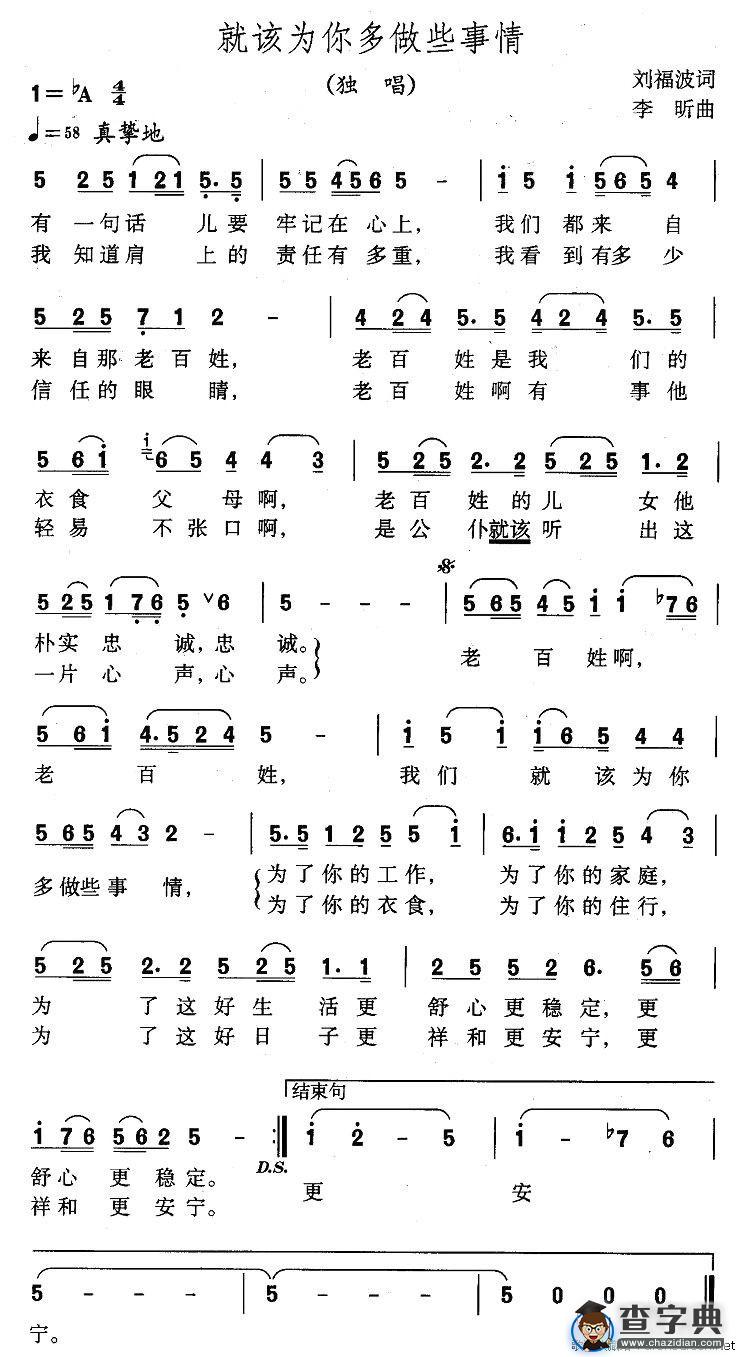 就该为你多做些事情
(独 唱)
1=♭A 4/4
刘福波词
李 昕曲
♩=58 真挚地
5 2 5 1 2 1 5. 5 | 5 5 4 5 6 5 5 - | i 5 i 5 6 5 4
有 一句话 儿要 牢记在 心上, 我们 都来 自
我 知道肩 上的 责任有 多重, 我看 到有多 少
5 2 5 7 1 2 - | 4 2 4 5. 5 4 2 4 5. 5 |
来 自那老百姓, 老百 姓是我 们的
信 任的眼 睛, 老百 姓啊有 事他
5 6 i i 6 5 4 4 3 | 5 2 5 2. 2 5 2 5 1. 2 |
衣食 父 母啊, 老百 姓的儿 女他
轻易 不张口啊, 是公 仆就该听 出这
5 2 5 1 7 6 5 ∨ 6 | 5 - - - | 5 6 5 4 5 i i ♭7 6 |
朴实 忠 诚,忠 诚。 老 百 姓啊,
一片 心 声,心 声。
5 6 i 4. 5 2 4 5 - | i 5 i i 6 5 4 4 |
老 百 姓, 我们 就 该为你
5 6 5 4 3 2 - | 5. 5 1 2 5 5 i | 6. i i 2 5 4 3 |
多做些事 情, 为了你的工作, 为了你的家庭,
为了你的衣食, 为了你的住行,
5 2 5 2. 2 5 2 5 1. 1 | 2 5 5 2 6. 5 6 |
为 了这好生 活更 舒心更稳定,更
为 了这好日 子更 祥和更安宁,更
结束句
i 7 6 5 6 2 5 - :| i 2 - 5 | i - ♭7 6 |
D.S.
舒心 更 稳定。 更 安
祥和 更 安宁。
5 - - - | 5 - - - | 5 - - - | 5 0 0 0 ‖
宁。
查字典
www.chazidian.com